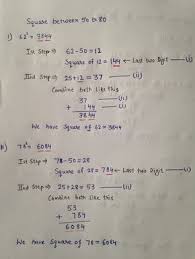 Square between 50 to 80
1) 62² = 3844
Ist Step → 62-50=12
Square of 12 = 144 ← Last two Digit —(i)
IInd Step → 25+12 = 37 —(ii)
Combine both like this
37 —(ii)
+ 144 —(i)
3844
We have Square of 62 = 3844
78² = 6084
Ist Step → 78-50=28
Square of 28 = 784 → Last two digit —(i)
IInd Step → 25+28 = 53 —(ii)
Combine both like this
53
+ 784
6084
We have Square of 78 = 6084